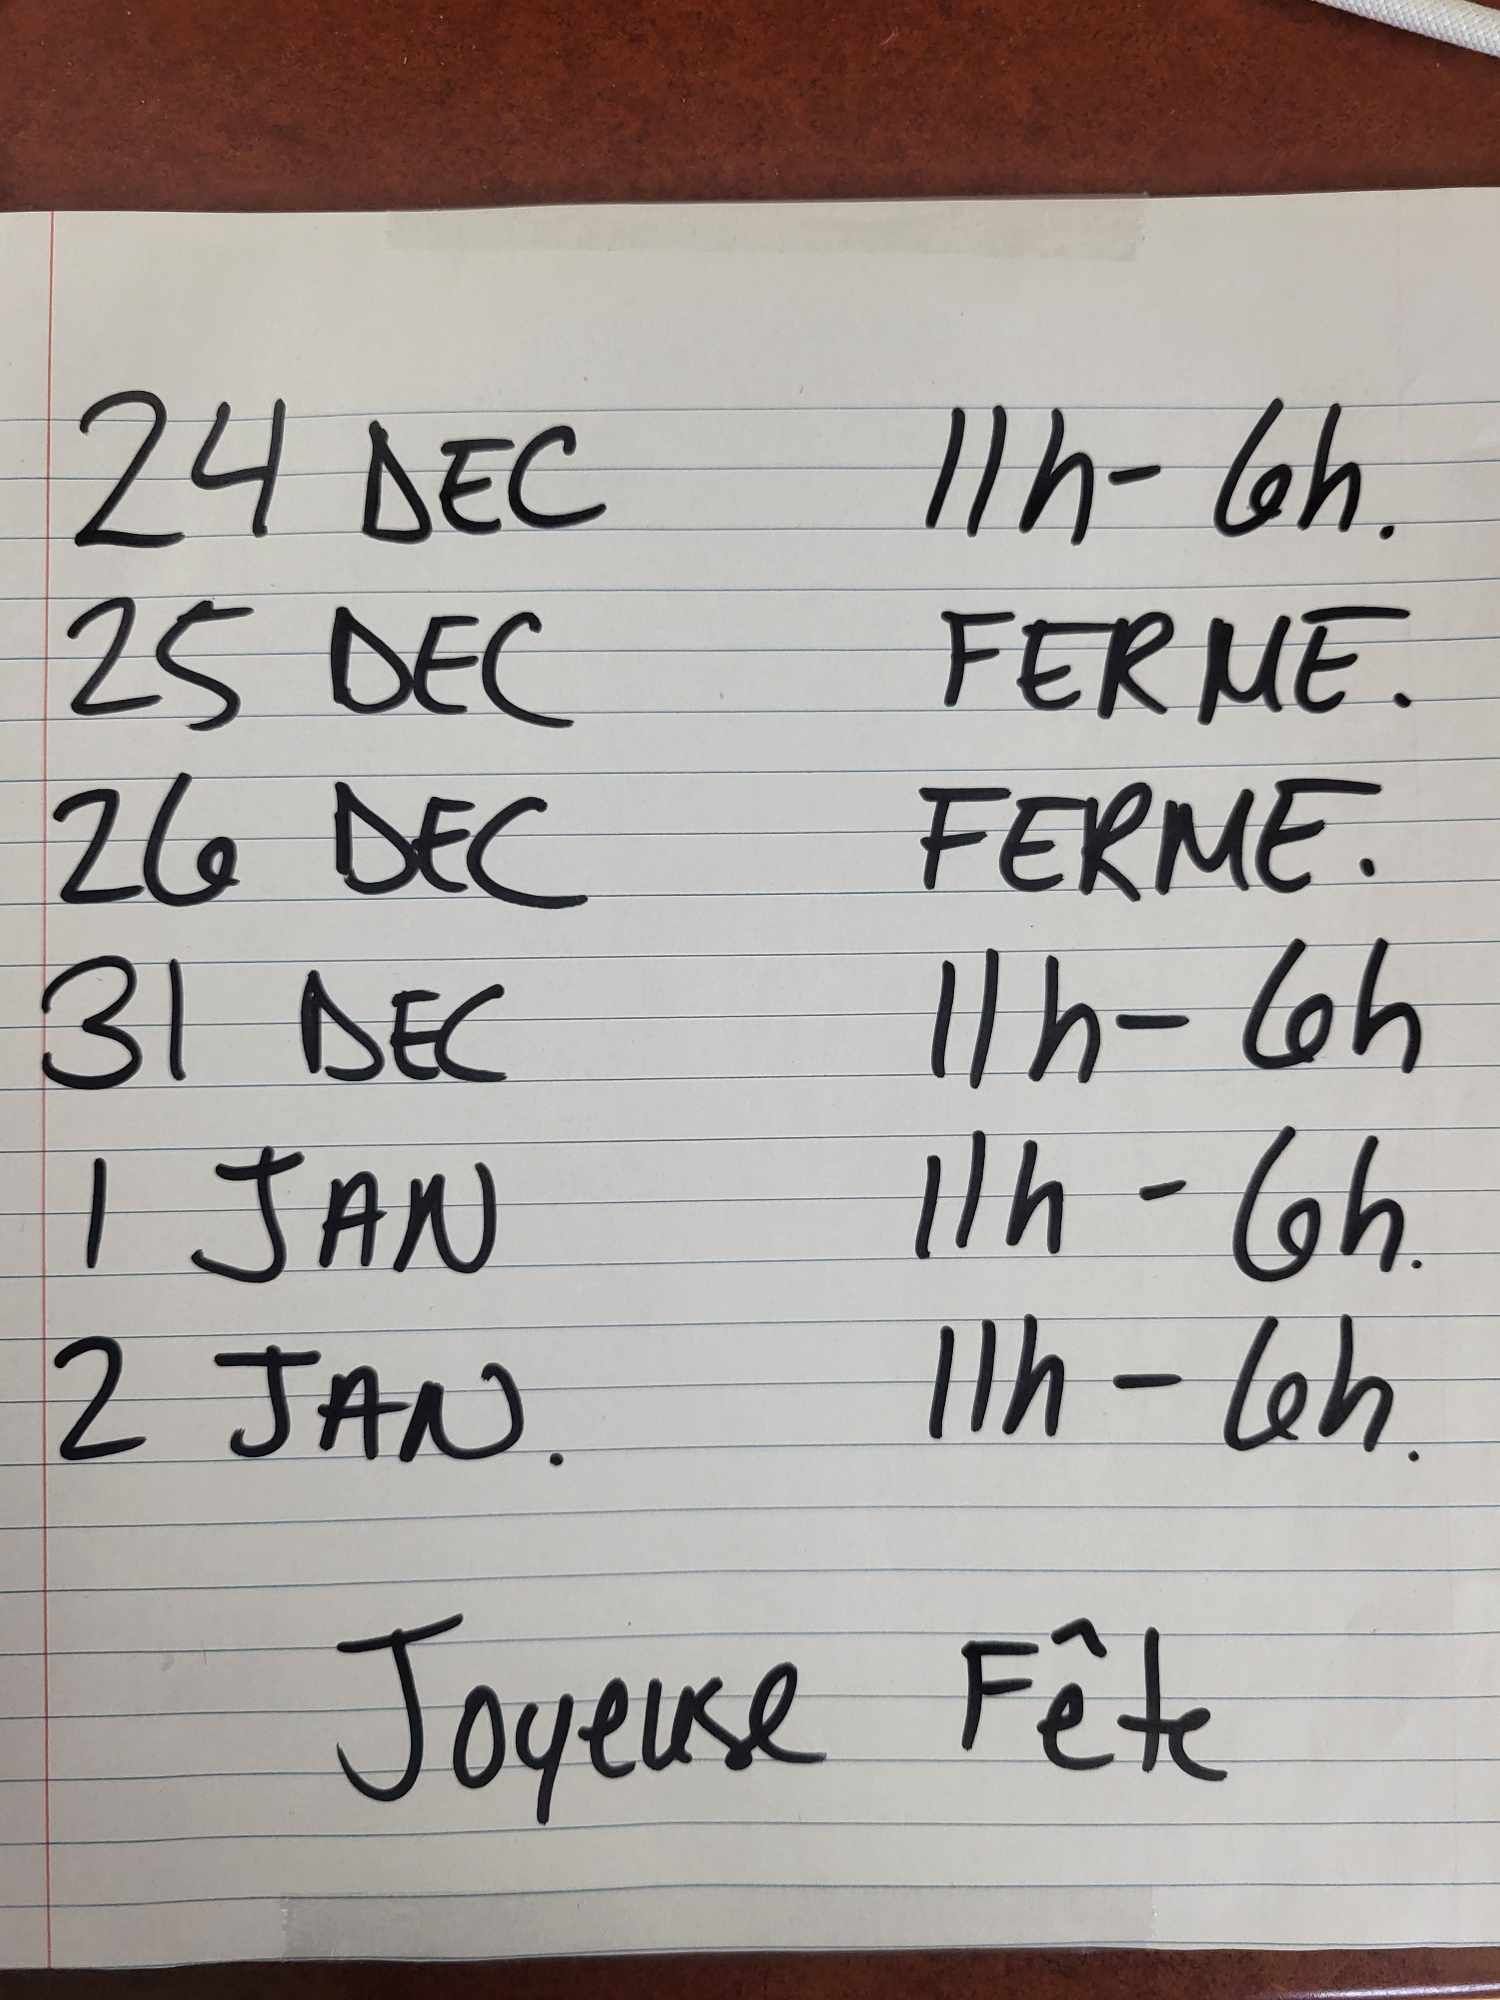 24 DEC 11h - 6h.
25 DEC FERME.
26 DEC FERME.
31 DEC 11h - 6h
1 JAN 11h - 6h.
2 JAN. 11h - 6h.
Joyeuse Fête